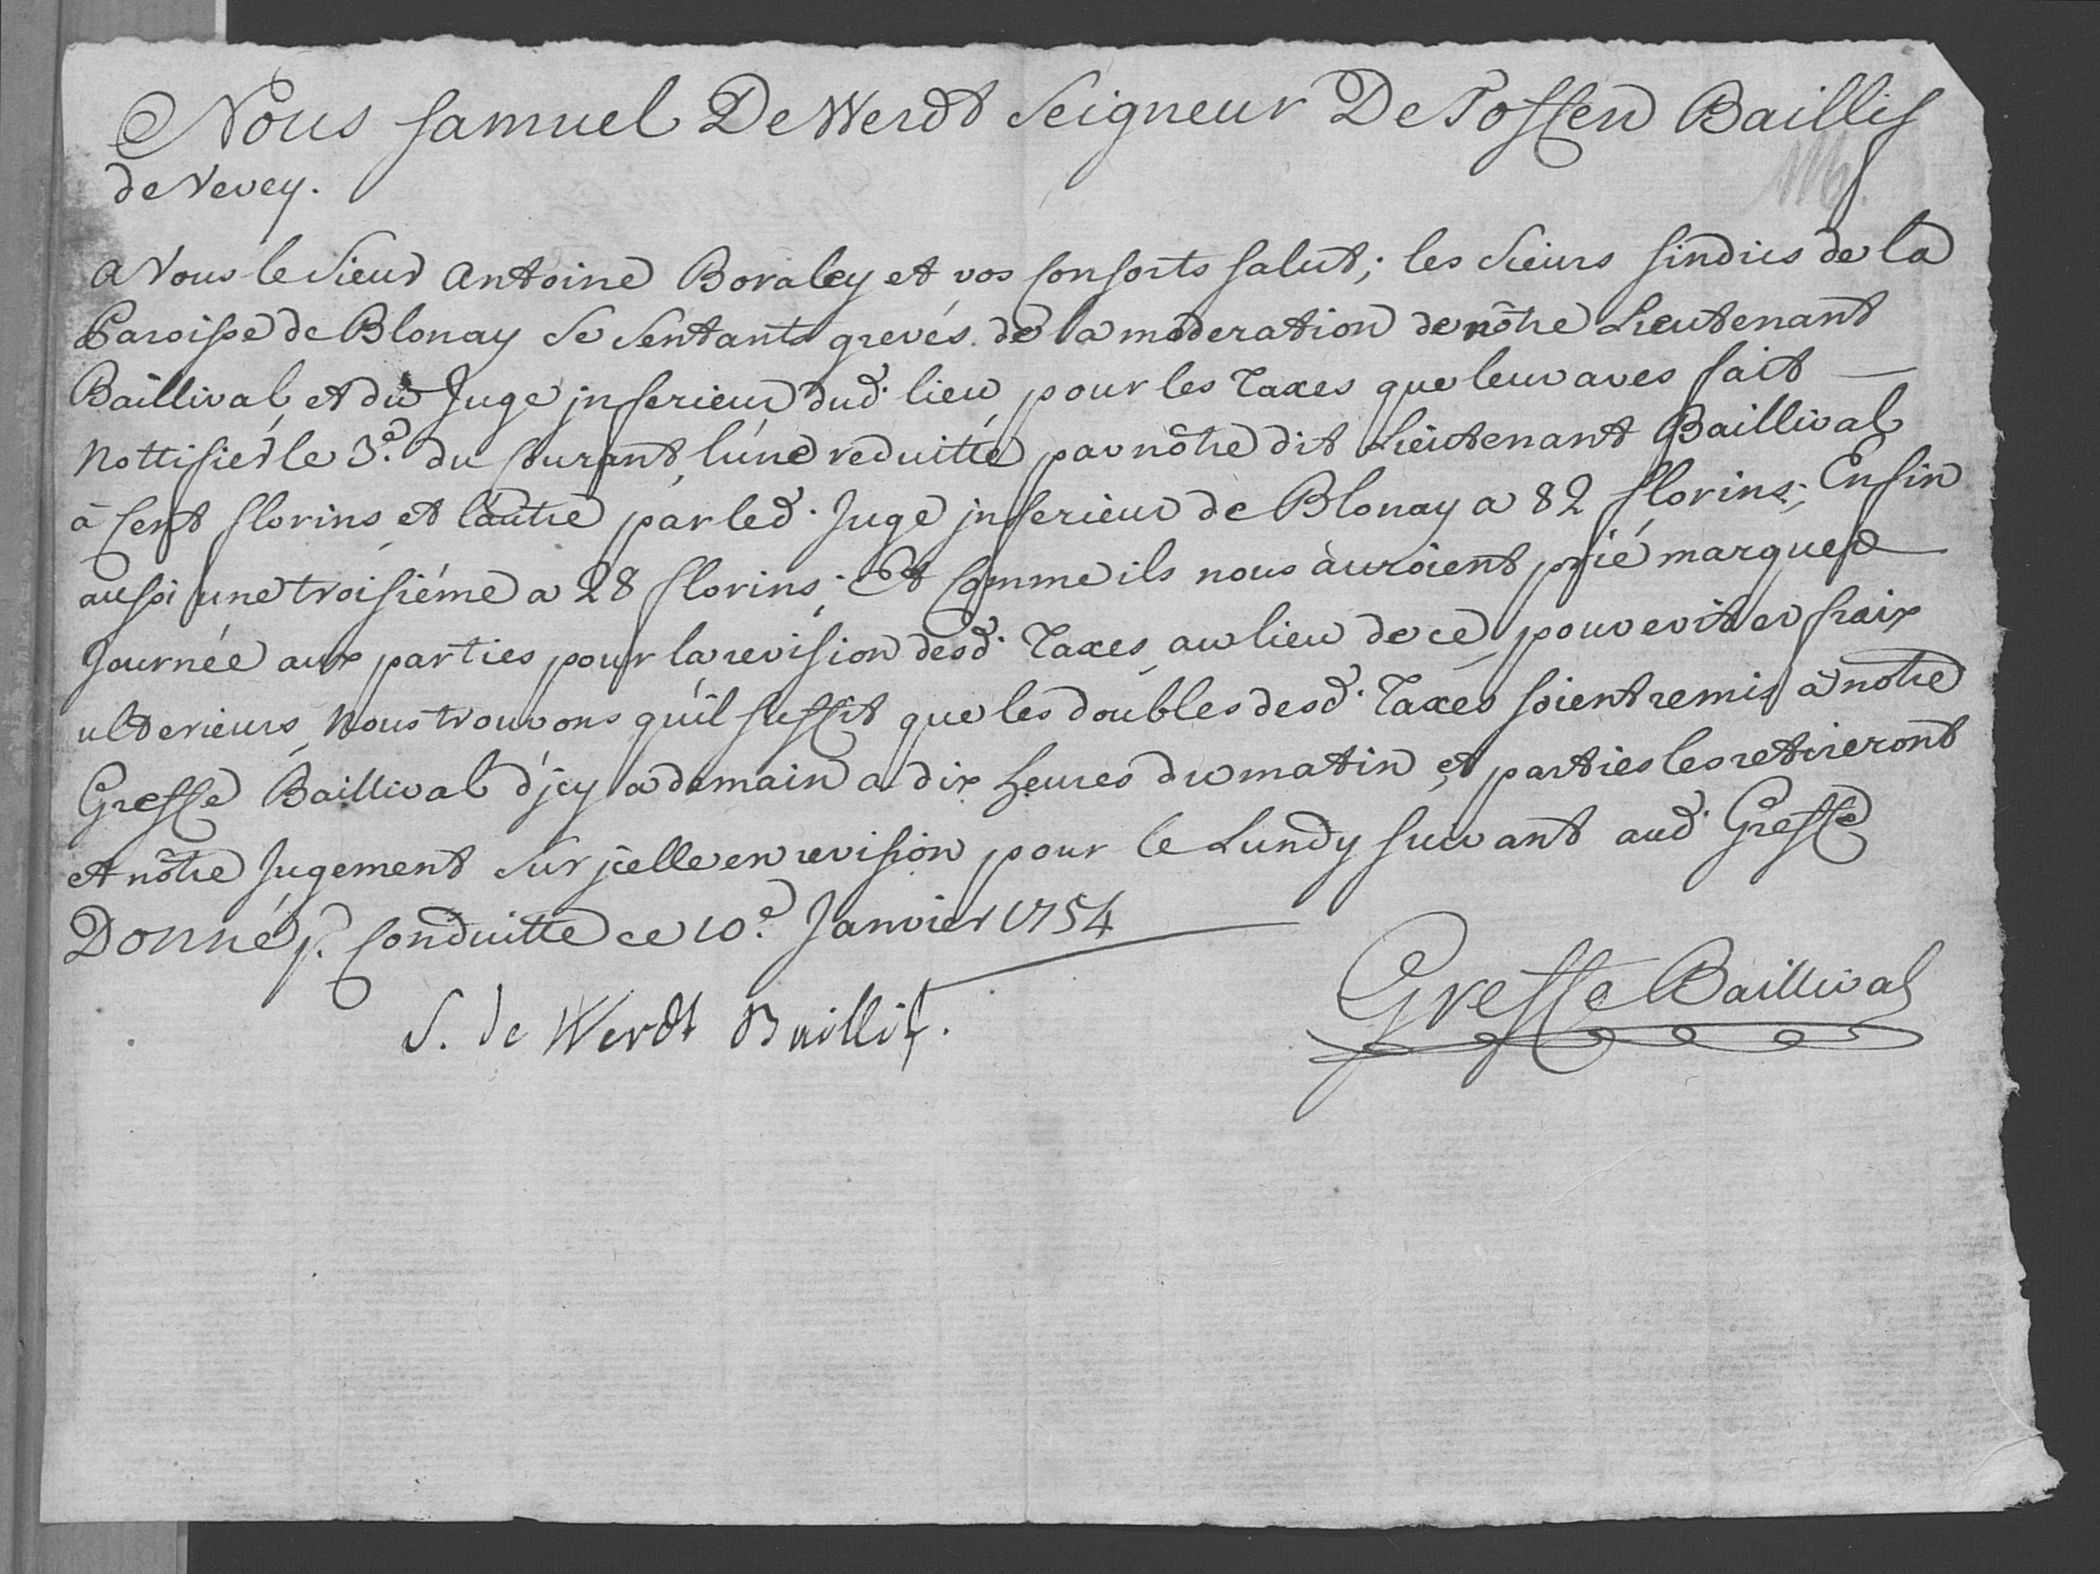 Nous Samuel De Werdt Seigneur De Toffen Baillif
de Vevey.
A Vous le Sieur Antoine Bovaley et vos Consorts salut; les Sieurs sindics de la
Paroisse de Blonay se sentants grevés de la moderation de nôtre Lieutenant
Baillival, et du Juge jnferieur dud. lieu pour les Taxes que leur aves fait
Nottifier le 3e. du Courant l'une reduitte par nôtre dit Lieutenant Baillival
à Cent florins et l'autre par led. Juge jnferieur de Blonay a 82 florins; Enfin
aussi une troisiéme a 28 florins; Et Comme ils nous auroient prié marquer
Journée aux parties pour la revision desd. Taxes, au lieu de ce, pour eviter fraix
ulterieurs, Nous trouvons qu'il suffit que les doubles desd. Taxes soient remis à nôtre
Greffe Baillival d'jcy a demain a dix heures du matin et parties les retireront
et nôtre Jugement sur jcelle en revision pour le Lundy suivant aud. Greffe
Donné p. Conduitte ce 10e. Janvier 1754
S. de Werdt Baillif.
Greffe Baillival